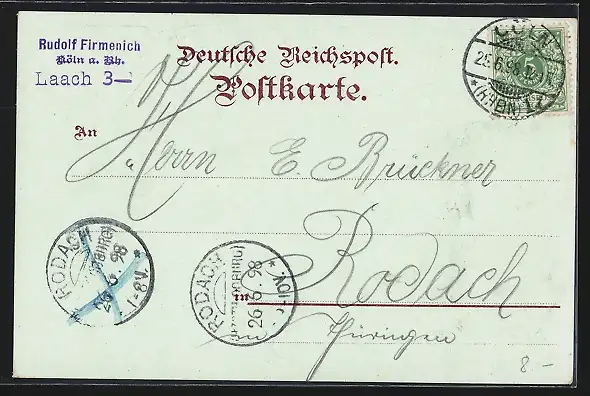 Rudolf Firmenich
Köln a. Rh.
Laach 3
Deutsche Reichspost.
Postkarte.
CÖLN
5
25.6.98
(RHEIN)
An
Herrn E. Brückner
RODACH
26.6.98
7-8V.
RODACH
26.6.98
in
Rodach
Thüringen
8 –